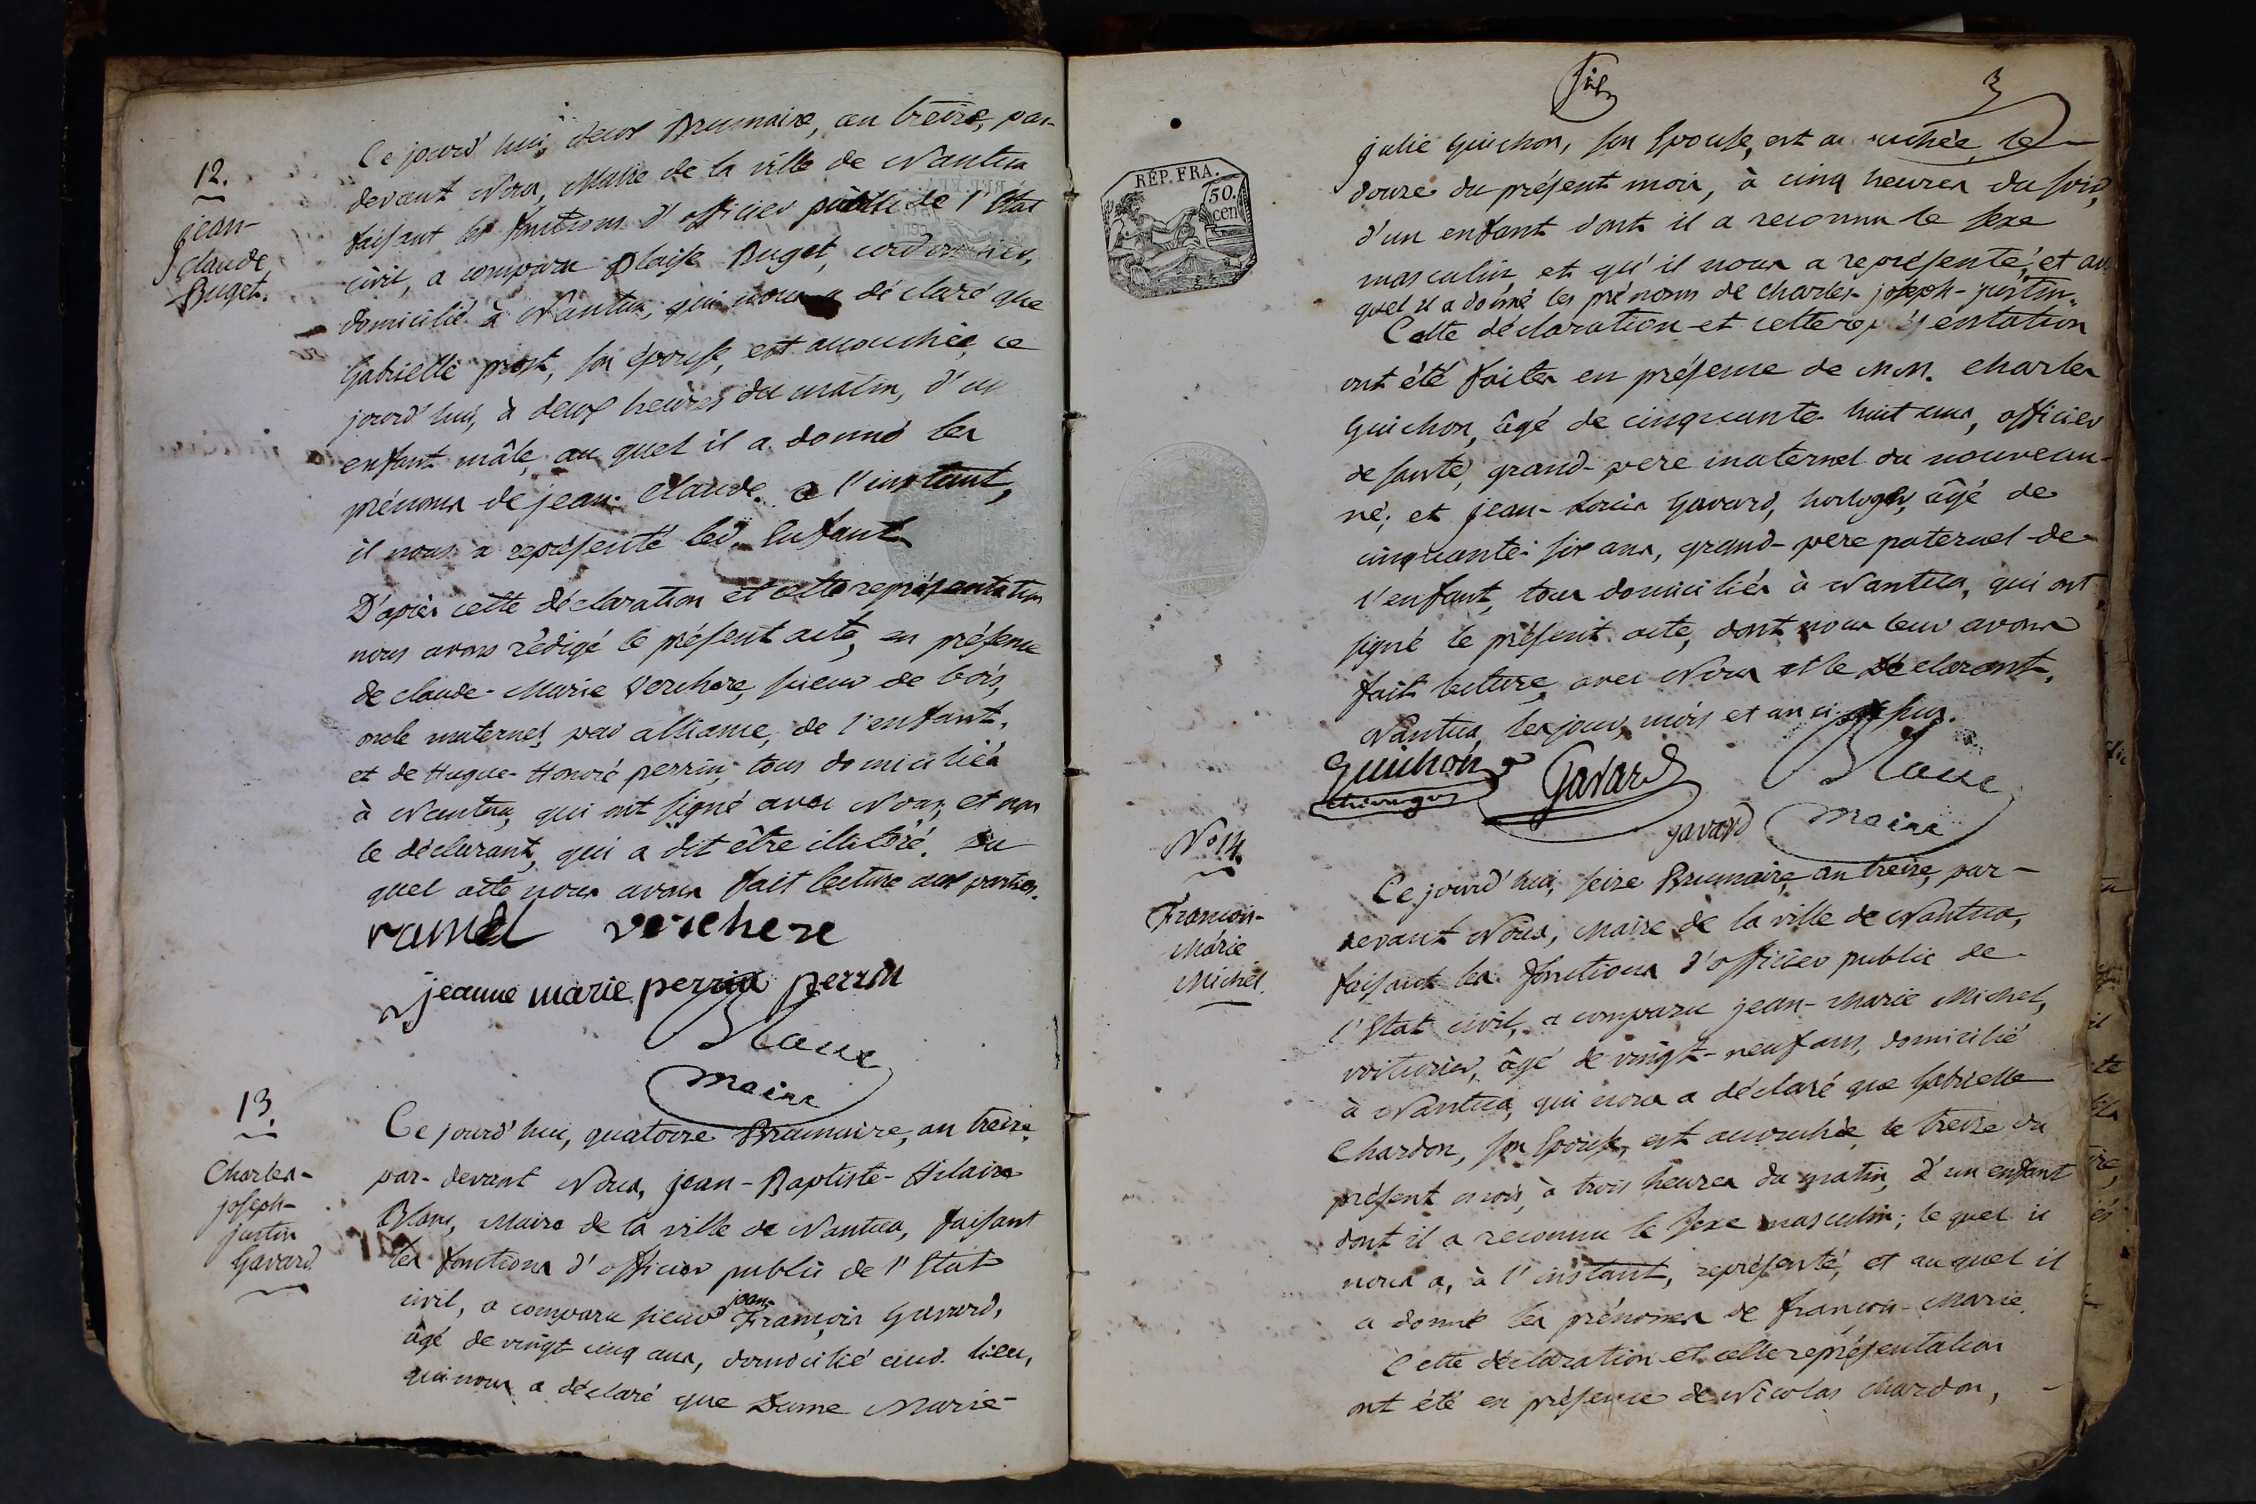 12.
jean-
claude
Buget.
Ce jourd'hui, deux Brumaire, an treize, par-
devant Nous, Maire de la ville de Nantua
faisant les fonctions d'officier public de l'Etat
civil, a comparu Blaise Buget, cordonnier,
domicilié à Nantua, qui nous a déclaré que
Gabrielle prost, son épouse, est acouchée, ce
jourd'hui, à deux heures du matin, d'un
enfant mâle, au quel il a donné les
prénoms de jean-Claude. a l'instant,
il nous a représenté led. Enfant.
D'après cette déclaration et cette représentation
nous avons rédigé le présent acte, en présence
de claude-Marie Verchere, scieur de bois,
oncle maternel, par alliance, de l'enfant,
et de Hugue-Honoré perrin, tous domiciliés
à Nantua, qui ont signé avec Nous, et non
le déclarant, qui a dit être illitéré. Du
quel acte nous avons fait lecture aux parties.
ramel verchere
jeanne marie perrin perrin
Blanc
maire
13.
Charles-
joseph-
justin
Gavard
Ce jourd'hui, quatorze Brumaire, an treize,
par-devant Nous, Jean-Baptiste-Hilaire
Blanc, Maire de la ville de Nantua, faisant
les fonctions d'officier public de l'Etat
civil, a comparu sieur jean-François Gavard,
âgé de vingt cinq ans, domicilié aud. lieu,
qui nous a déclaré que Dame Marie-
3
RÉP. FRA.
50.
cen
julie Guichon, son Epouse, est acouchée, le
douze du présent mois, à cinq heures du soir,
d'un enfant dont il a reconnu le sexe
masculin, et qu'il nous a représenté, et au
quel il a donné les prénoms de charles-joseph-justin.
Cette déclaration et cette représentation
ont été faites en présence de M.M. Charles
Guichon, âgé de cinquante huit ans, officier
de santé, grand-pere maternel du nouveau-
né; et Jean-Louis Gavard, horloger, âgé de
cinquante-six ans, grand-pere paternel de
l'enfant, tous domiciliés à Nantua, qui ont
signé le présent acte, dont nous leur avons
fait lecture, avec Nous et le déclarant.
Nantua, les jour, mois et an ci-dessus.
Guichon Gavard Blanc
chirurgien
gavard maire
No 14.
François-
Marie
Michel.
Ce jourd'hui, seize Brumaire, an treize, par-
devant Nous, Maire de la ville de Nantua,
faisant les fonctions d'officier public de
l'Etat civil, a comparu jean-Marie Michel,
voiturier, âgé de vingt-neuf ans, domicilié
à Nantua, qui nous a déclaré que Gabrielle
Chardon, son Epouse, est acouchée, le treize du
présent mois, à trois heures du matin, d'un enfant
dont il a reconnu le sexe masculin; le quel il
nous a, à l'instant, représenté, et au quel il
a donné les prénoms de françois-Marie.
Cette déclaration et cette représentation
ont été en présence de Nicolas chardon,